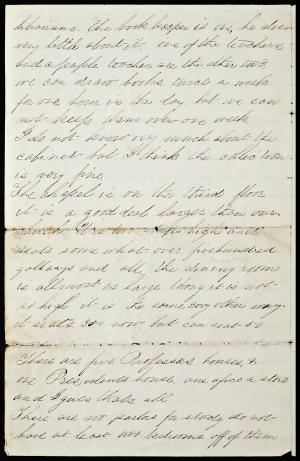 librarians. The book keeper is one, he does
very little about it. one of the teachers
and a people teacher are the other two
we can draw books twice a week
for one hour in the day, but we can
not keep them over one week.
I do not know very much about the
cabinet but I think the collection
is very fine
The chapel is on the third floor
it is a good deal larger than our
church. It is two high and
seats some what over five hundred
gallarys and all, the dining room
is allmost as large long it is not
so high it is the same evry other way
it seats 300 now but can seat 50
There are five Professors houses, &
one Presidents house, one office a store
and I guess thats all
There are no parlors for study do not
have at least two bedrooms off of them